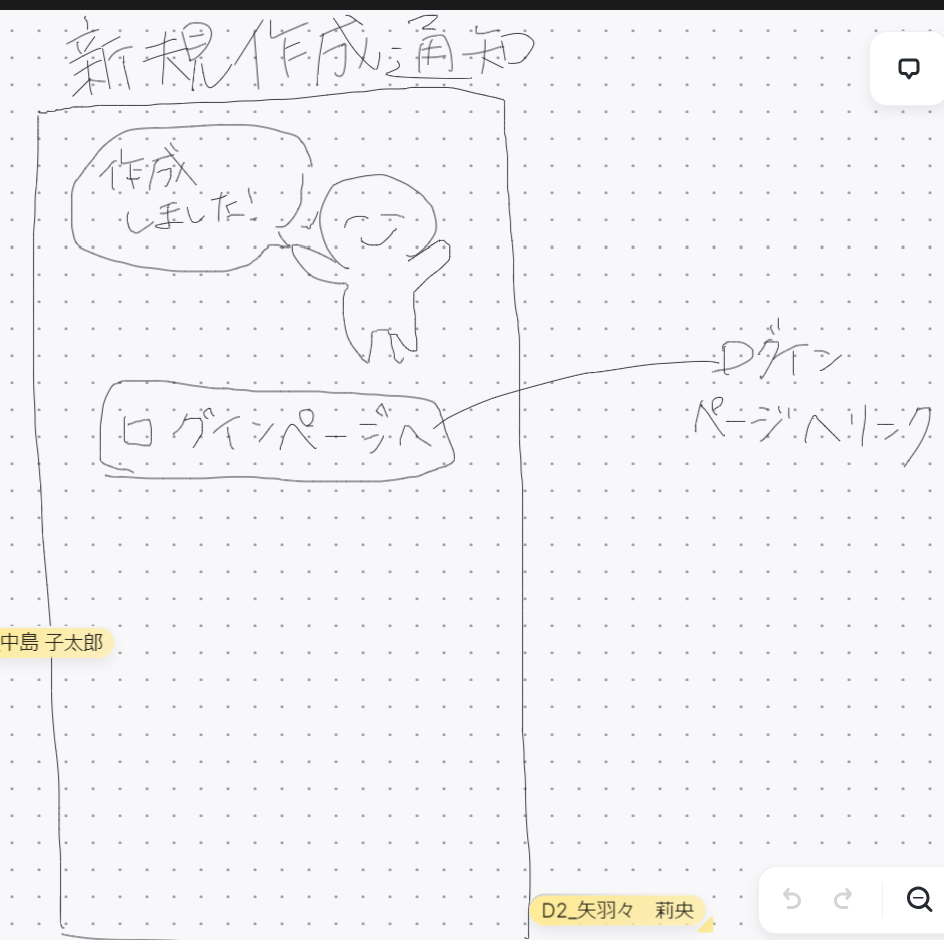 新規作成通知
作成
しました!
ログインページへ
ログイン
ページへリンク
中島 子太郎
D2_矢羽々 莉央